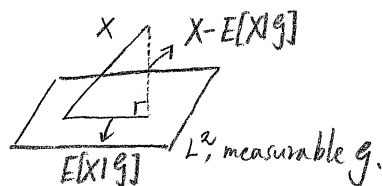 X
X-E[X|g]
E[X|g]
L², measurable g.